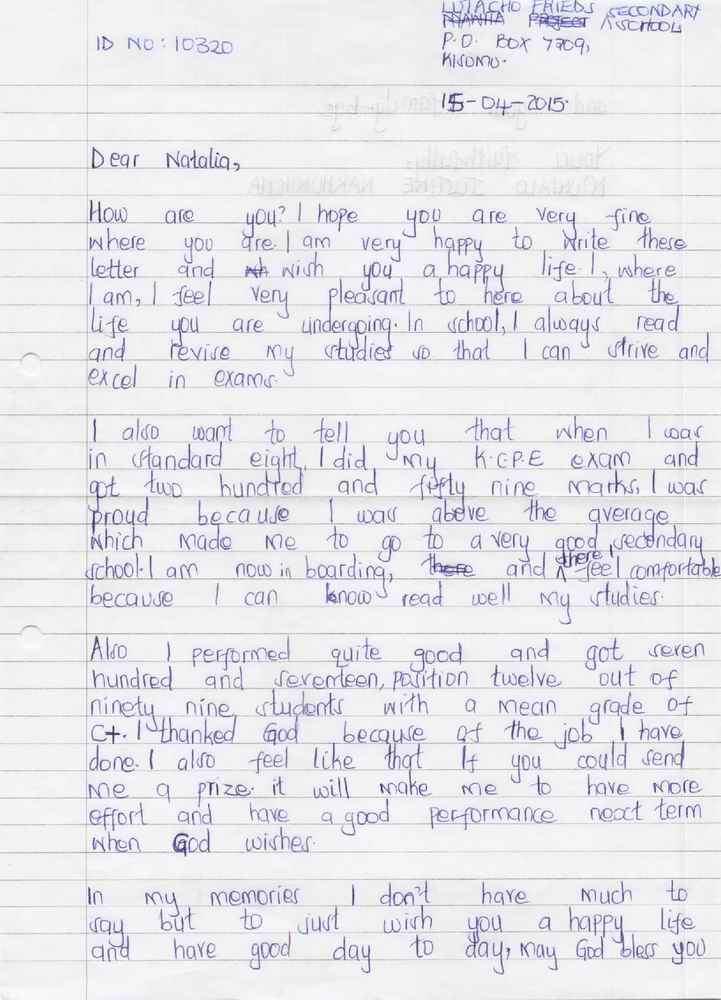 LUTACHO FRIEDS SECONDARY
SCHOOL
ID NO: 10320
P.O. BOX 7709,
KISUMU.
15-04-2015.
Dear Natalia,
How are you? I hope you are very fine
where you are. I am very happy to write these
letter and wish you a happy life. I, where
I am, I feel very pleasant to here about the
life you are undergoing. In school, I always read
and revise my studies so that I can strive and
excel in exams.
I also want to tell you that when I was
in standard eight, I did my K.C.P.E exam and
got two hundred and fifty nine marks, I was
proud because I was above the average
which made me to go to a very good secondary
school. I am now in boarding, and there I feel comfortable
because I can know read well my studies.
Also I performed quite good and got seven
hundred and seventeen, position twelve out of
ninety nine students with a mean grade of
C+. I thanked God because of the job I have
done. I also feel like that If you could send
me a prize. it will make me to have more
effort and have a good performance next term
when God wishes.
In my memories I don't have much to
say but to just wish you a happy life
and have good day to day, may God bless you